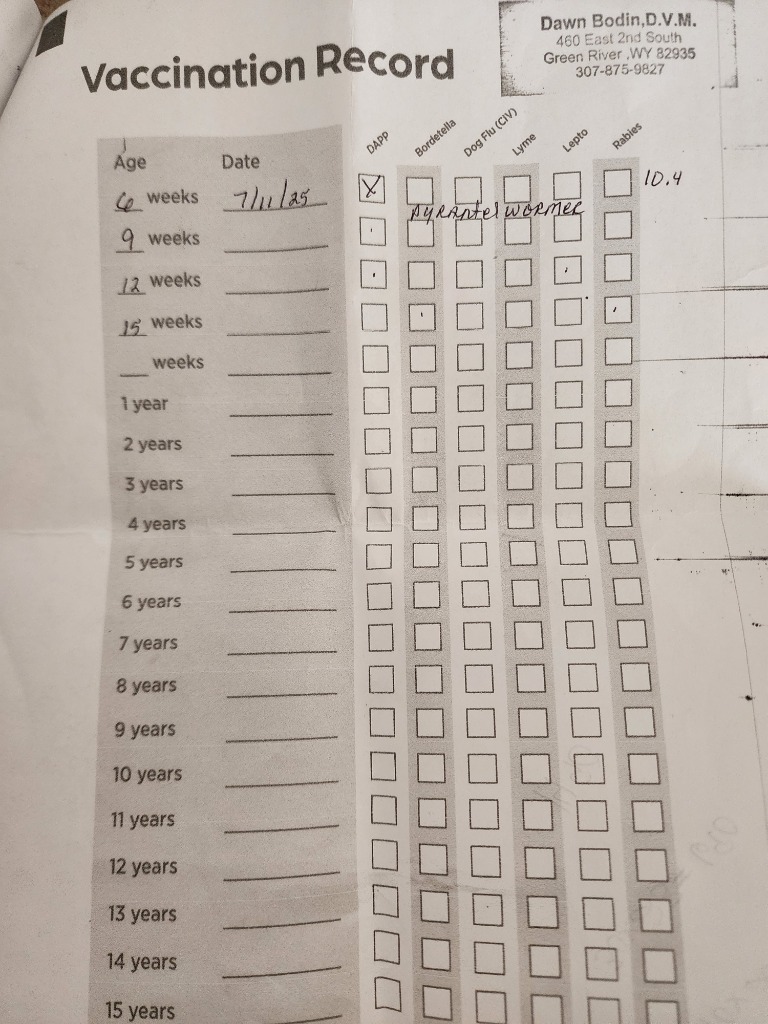 Dawn Bodin,D.V.M.
460 East 2nd South
Green River ,WY 82935
307-875-9827
Vaccination Record
Age Date DAPP Bordetella Dog Flu (CIV) Lyme Lepto Rabies
6 weeks 7/11/25 X 10.4
pyrantel wormer
9 weeks
12 weeks
15 weeks
weeks
1 year
2 years
3 years
4 years
5 years
6 years
7 years
8 years
9 years
10 years
11 years
12 years
13 years
14 years
15 years